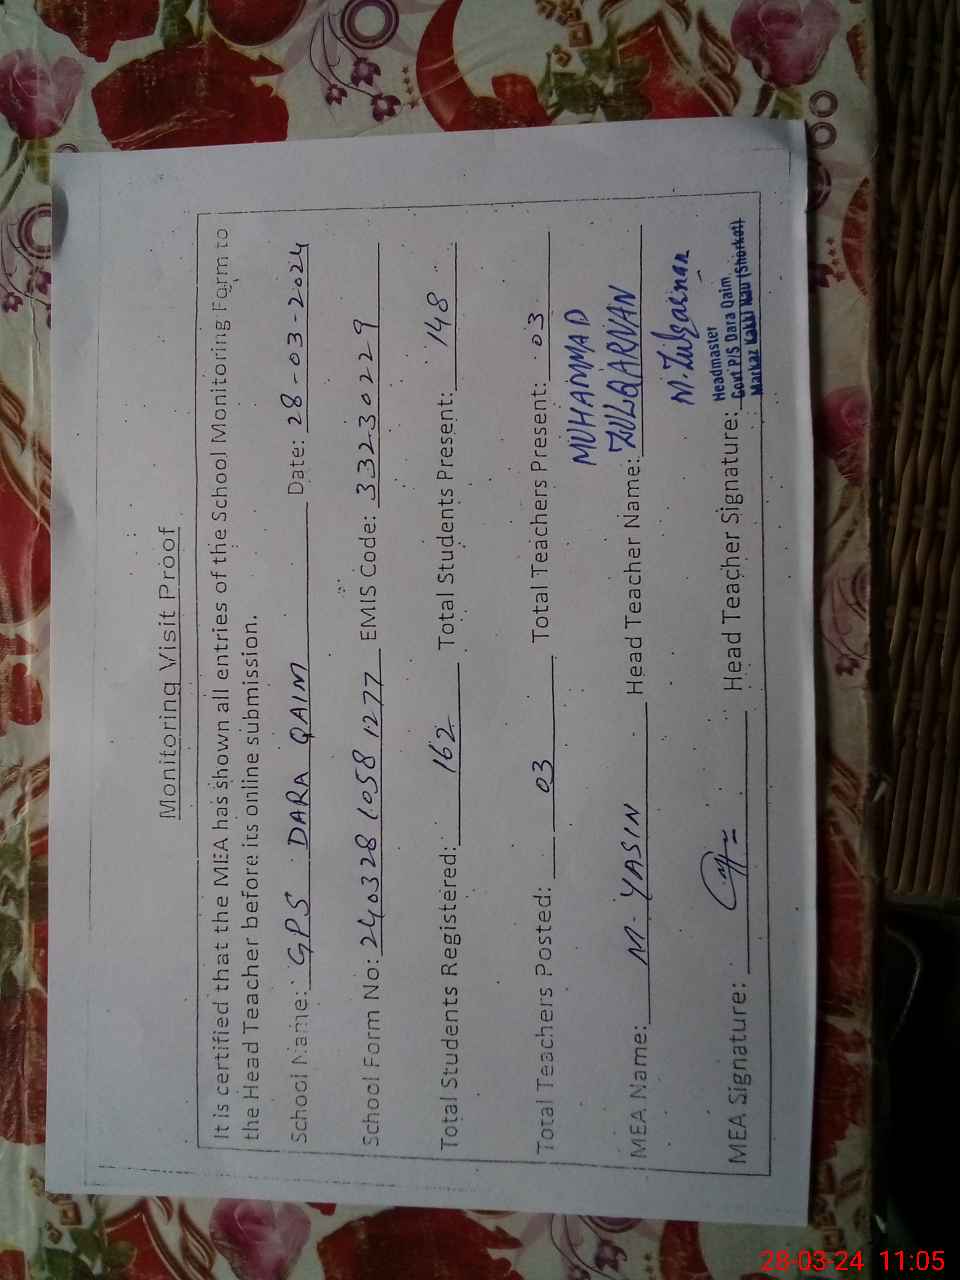 Monitoring Visit Proof
It is certified that the MEA has shown all entries of the School Monitoring Form to
the Head Teacher before its online submission.
School Name: GPS DARA QAIM Date: 28-03-2024
School Form No: 2403281058 1277 EMIS Code: 33230229
Total Students Registered: 162 Total Students Present: 148
Total Teachers Posted: 03 Total Teachers Present: 03
MUHAMMAD
MEA Name: M. YASIN Head Teacher Name: ZULQARNAN
M. Zulqarnan
MEA Signature: Head Teacher Signature:
Headmaster
Govt P/S Dara Qaim
Markaz Kakki Nau (Shorkot)
28-03-24 11:05